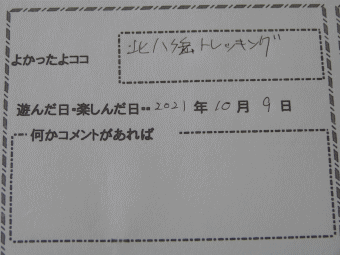 北八ヶ岳トレッキング
よかったよココ
遊んだ日・楽しんだ日・・ 2021 年 10 月 9 日
何かコメントがあれば